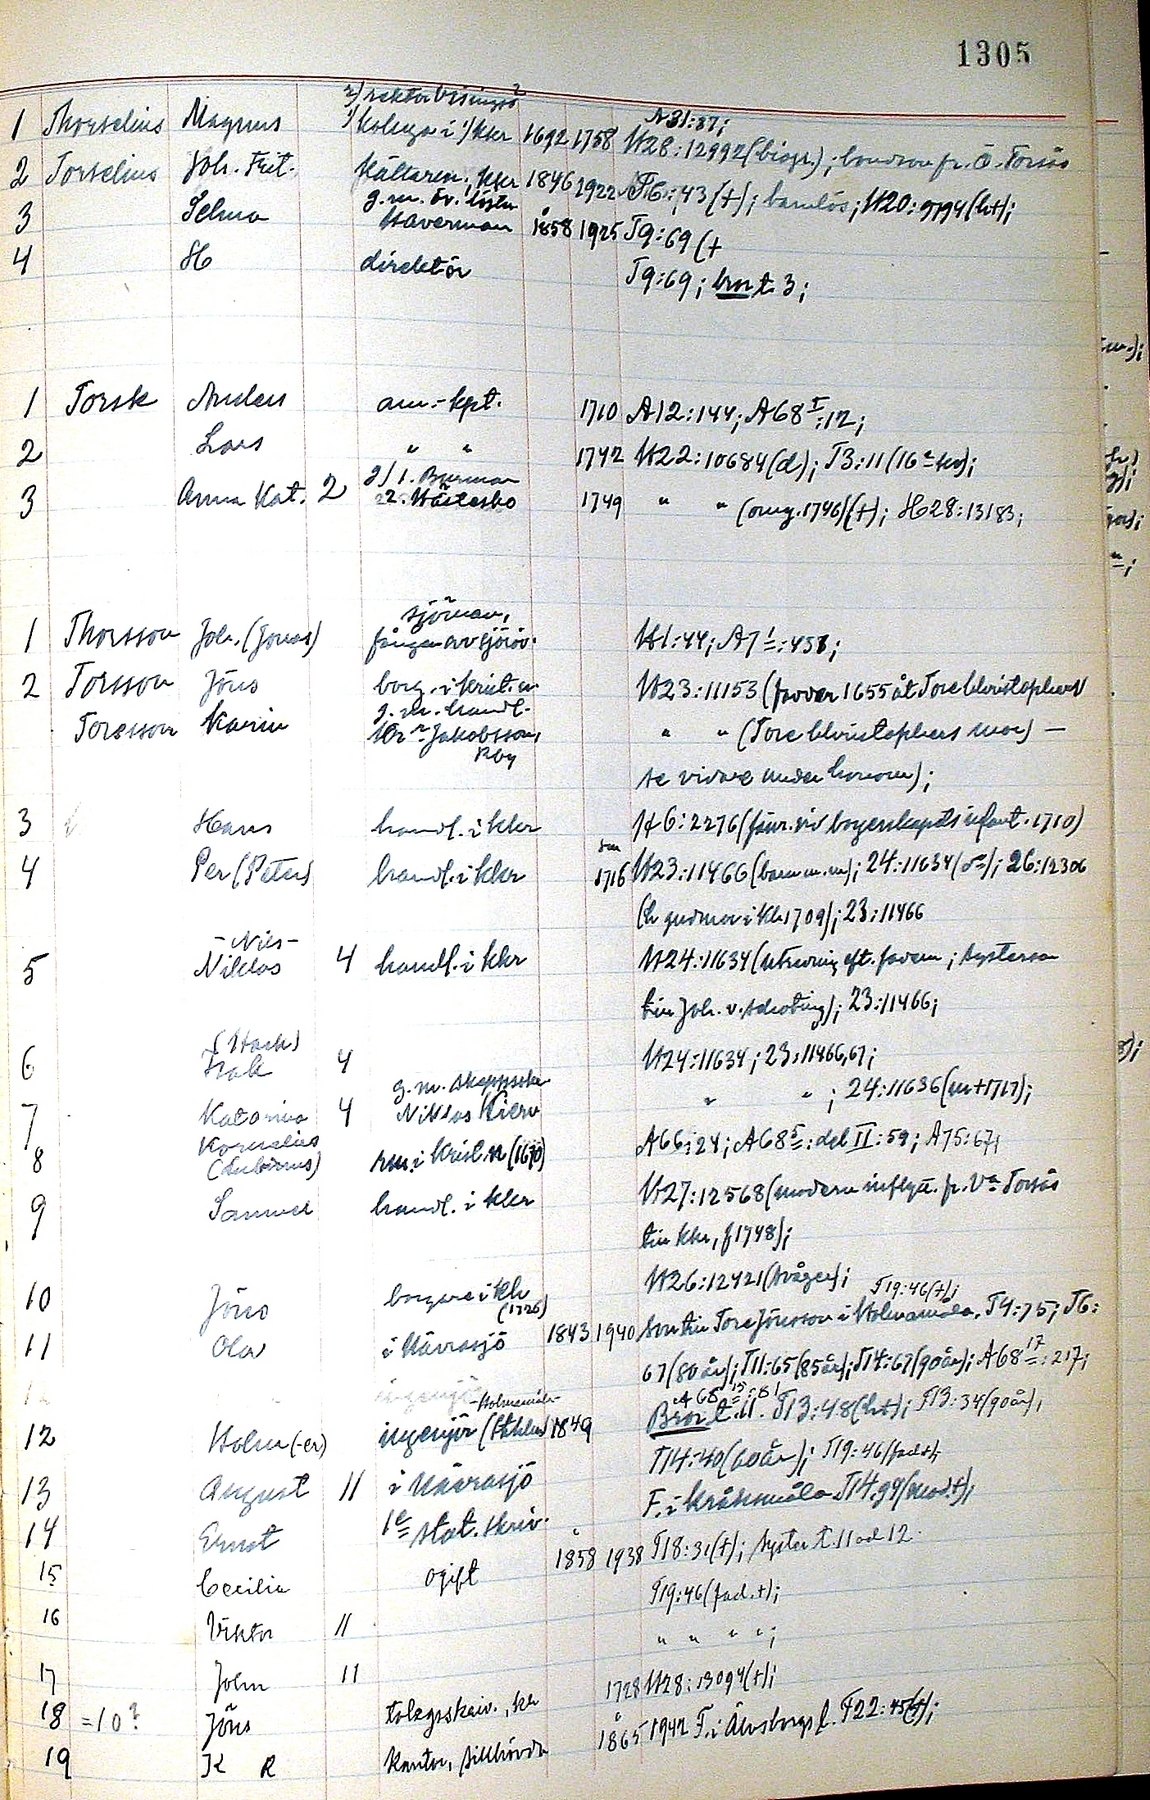 1305
2) rektor Visingsö
1 Thorselius Magnus 1) kollega i kkr 1692 1758 N31:37;
H28:12992 (biogr.); bondson fr. Ö. Torsås
2 Torselius Joh. Frit. källarem., kkr 1846 1922 T6:43 (†); barnlös; H20:9794 (ht);
3 Selma g.m. öv. löjtn Haverman 1858 1925 T9:69 (†
4 H direktör T9:69; bror t. 3;
1 Torsk Anders am.-kpt. 1710 A12:144; A68 I:12;
2 Lars " " 1742 H22:10684 (d); T3:11
3 Anna Kat. 2 2) 1. Burman
2. Västerbo 1749 " " (omg. 1746) (†); H28:13183;
1 Thorsson Joh. (Jonas) sjöman,
fången av sjöröv. H1:44; A7 1:458;
2 Torsson Jöns borg. i krist.n H23:11153 (farvar 1655 åt Tore Christophers
Toresson Karin g.m. handl.
Jakobsson, Rby " " (Tore Christophers mor) —
se vidare under honom);
3 Hans handl. i kkr H6:2276 (fänr. vid borgerskapets infant. 1710)
4 Per (Peter) handl. i kkr 1716 H23:11466 (barn m.m); 24:11634 (d:o); 26:12306
23:11466
5 - Nils -
Niklas 4 handl. i kkr H24:11634 (utredning eft. fadern; systerson
till Joh. v. Schoting); 23:11466;
6 (Hack)
4 H24:11634; 23:11466,67;
7 Katarina 4 g.m. skeppsche
Niklas " "; 24:11636 (m † 1717);
8 Kornelius
(Lubinus) rm. i krist.n (1670) A66:24; A68 5: del II:59; A75:67;
9 Samuel handl. i kkr H27:12568 (modern inflytt. fr. V:a Torsås
till kkr, f 1748);
10 Jöns borgare i kh (1726) H26:12421 (svåger);
11 Ola i Hävrasjö 1843 1940 Son till Tore Jönsson i Holmamåla. T4:75; T6:
T19:46 (†);
67 (80 år); T11:65 (85 år); T14:67 (90 år); A68 17:217;
12 Holm (-er) ingenjör -Holmamåla- 1849 A68 15:81
Bror t. 11. T13:48 (ht); T13:34 (90 år),
T14:40 (60 år); T19:46 (fad. †);
13 August 11 i Hävrasjö F. i Kråkemåla T14:99 (mod. †);
14 Ernst 1e stat. skriv.
15 Cecilia ogift 1858 1938 T18:31 (†); syster t. 11 od 12.
16 Viktor 11 T19:46 (fad. †);
17 John 11 " " " ";
18 =10? Jöns tolagsskriv., kr 1728 H28:13094 (†);
19 K R kantor, Sillhövda 1865 1942 F. i Älvsborgs l. T22:45 (†);